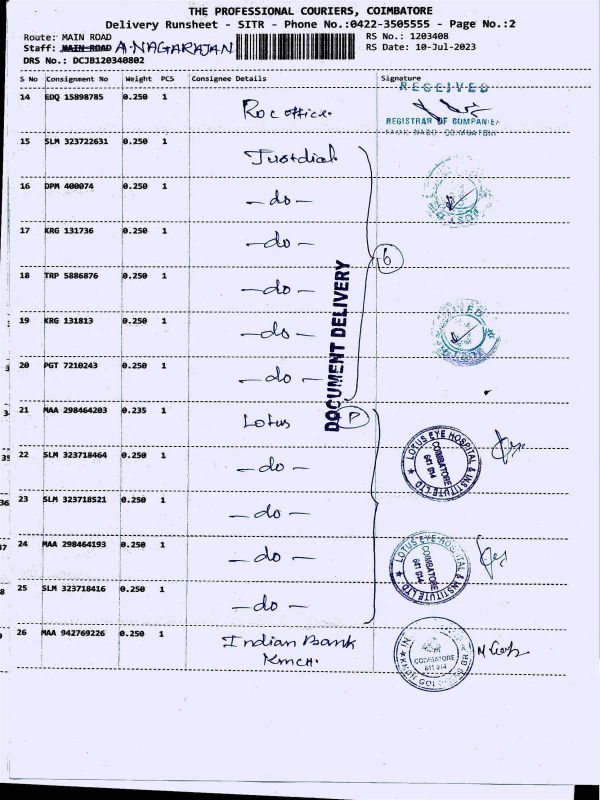 THE PROFESSIONAL COURIERS, COIMBATORE
Delivery Runsheet - SITR - Phone No.:0422-3505555 - Page No.:2
Route: MAIN ROAD
RS No.: 1203408
Staff: MAIN ROAD A. NAGARAJAN
RS Date: 10-Jul-2023
DRS No.: DCJB120340802
S No Consignment No Weight PCS Consignee Details Signature
RECEIVED
14 EDQ 15898785 0.250 1 Roc office
REGISTRAR OF COMPANIES
TAMIL NADU COIMBATORE
15 SLM 323722631 0.250 1 Justdial
16 DPM 400074 0.250 1 - do -
17 KRG 131736 0.250 1 - do -
6
18 TRP 5886876 0.250 1 - do -
DOCUMENT DELIVERY
19 KRG 131813 0.250 1 - do -
20 PGT 7210243 0.250 1 - do -
21 MAA 298464203 0.235 1 Lotus
P
LOTUS EYE HOSPITAL & INSTITUTE LTD
COIMBATORE
641 014
22 SLM 323718464 0.250 1 - do -
23 SLM 323718521 0.250 1 - do -
24 MAA 298464193 0.250 1 - do -
LOTUS EYE HOSPITAL & INSTITUTE LTD
COIMBATORE
641 014
25 SLM 323718416 0.250 1 - do -
26 MAA 942769226 0.250 1 Indian Bank
KMCH.
COIMBATORE
641 014